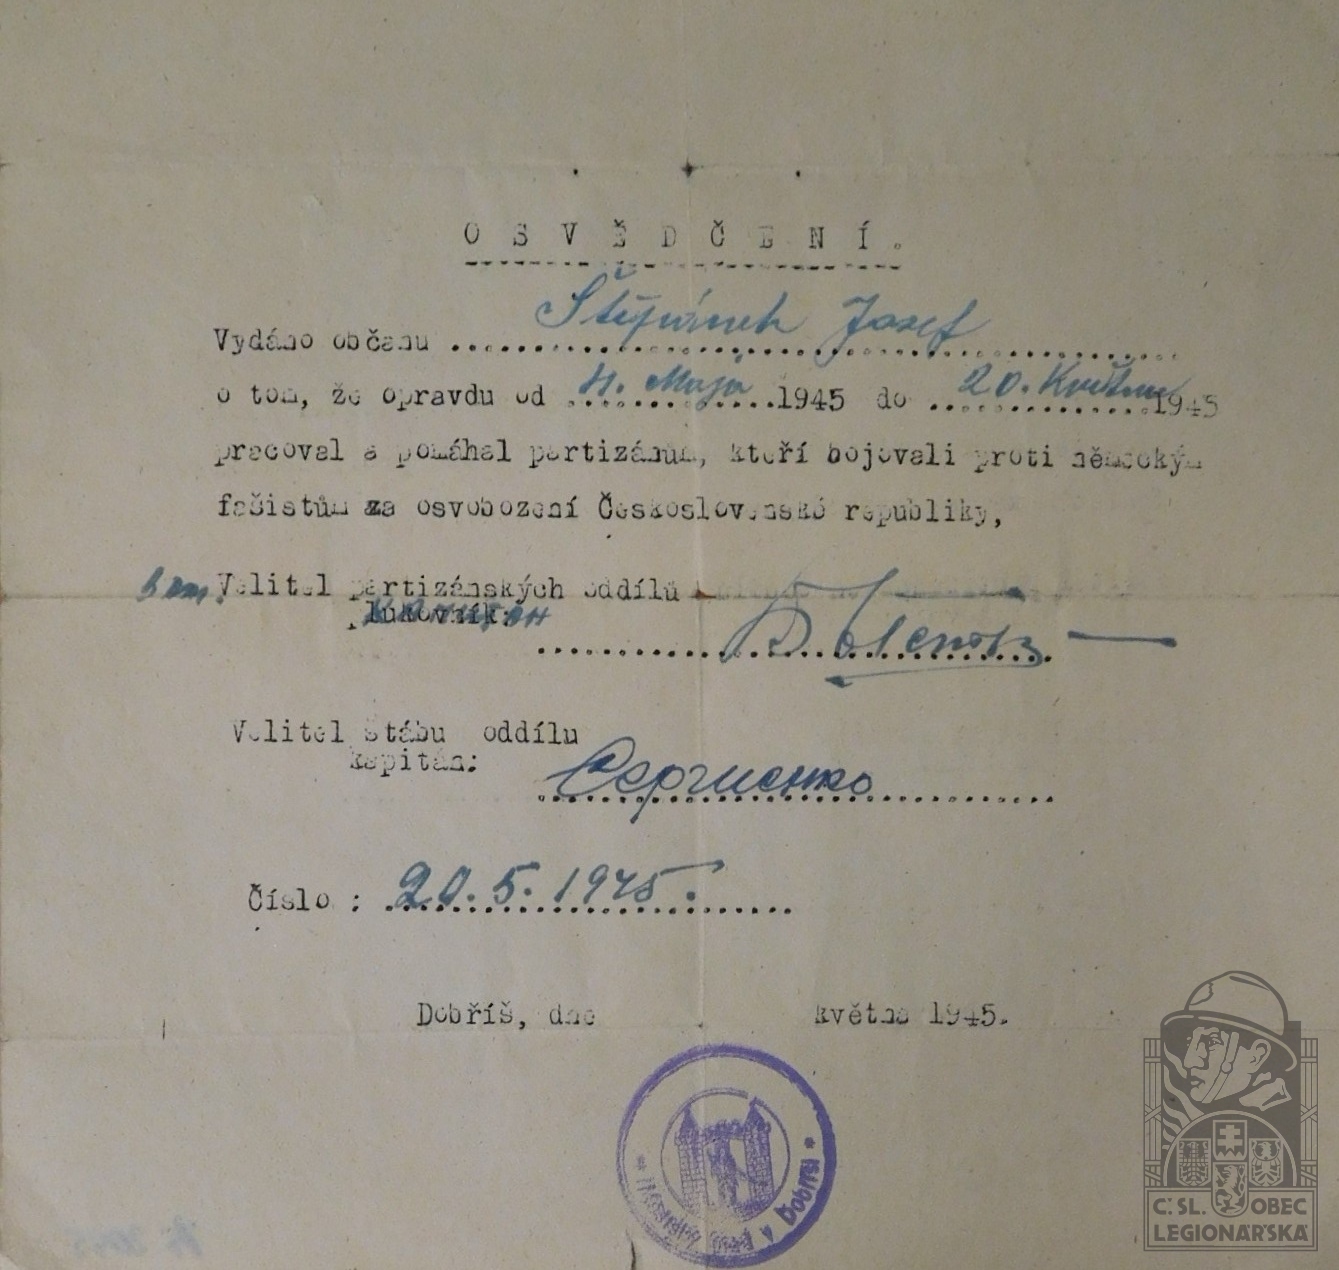 OSVĚDČENÍ.
Štěpánek Josef
Vydáno občanu
o tom, že opravdu od 4. Maja 1945 do 20. Května 1945
pracoval a pomáhal partizánům, kteří bojovali proti německým
fašistům za osvobození Československé republiky,
Velitel partizánských oddílů
plukovník:
Velitel štábu oddílu
kapitán:
Сергиенко
Číslo : 20.5.1945.
Dobříš, dne května 1945.
v Dobříši
Č. SL. OBEC
LEGIONÁŘSKÁ